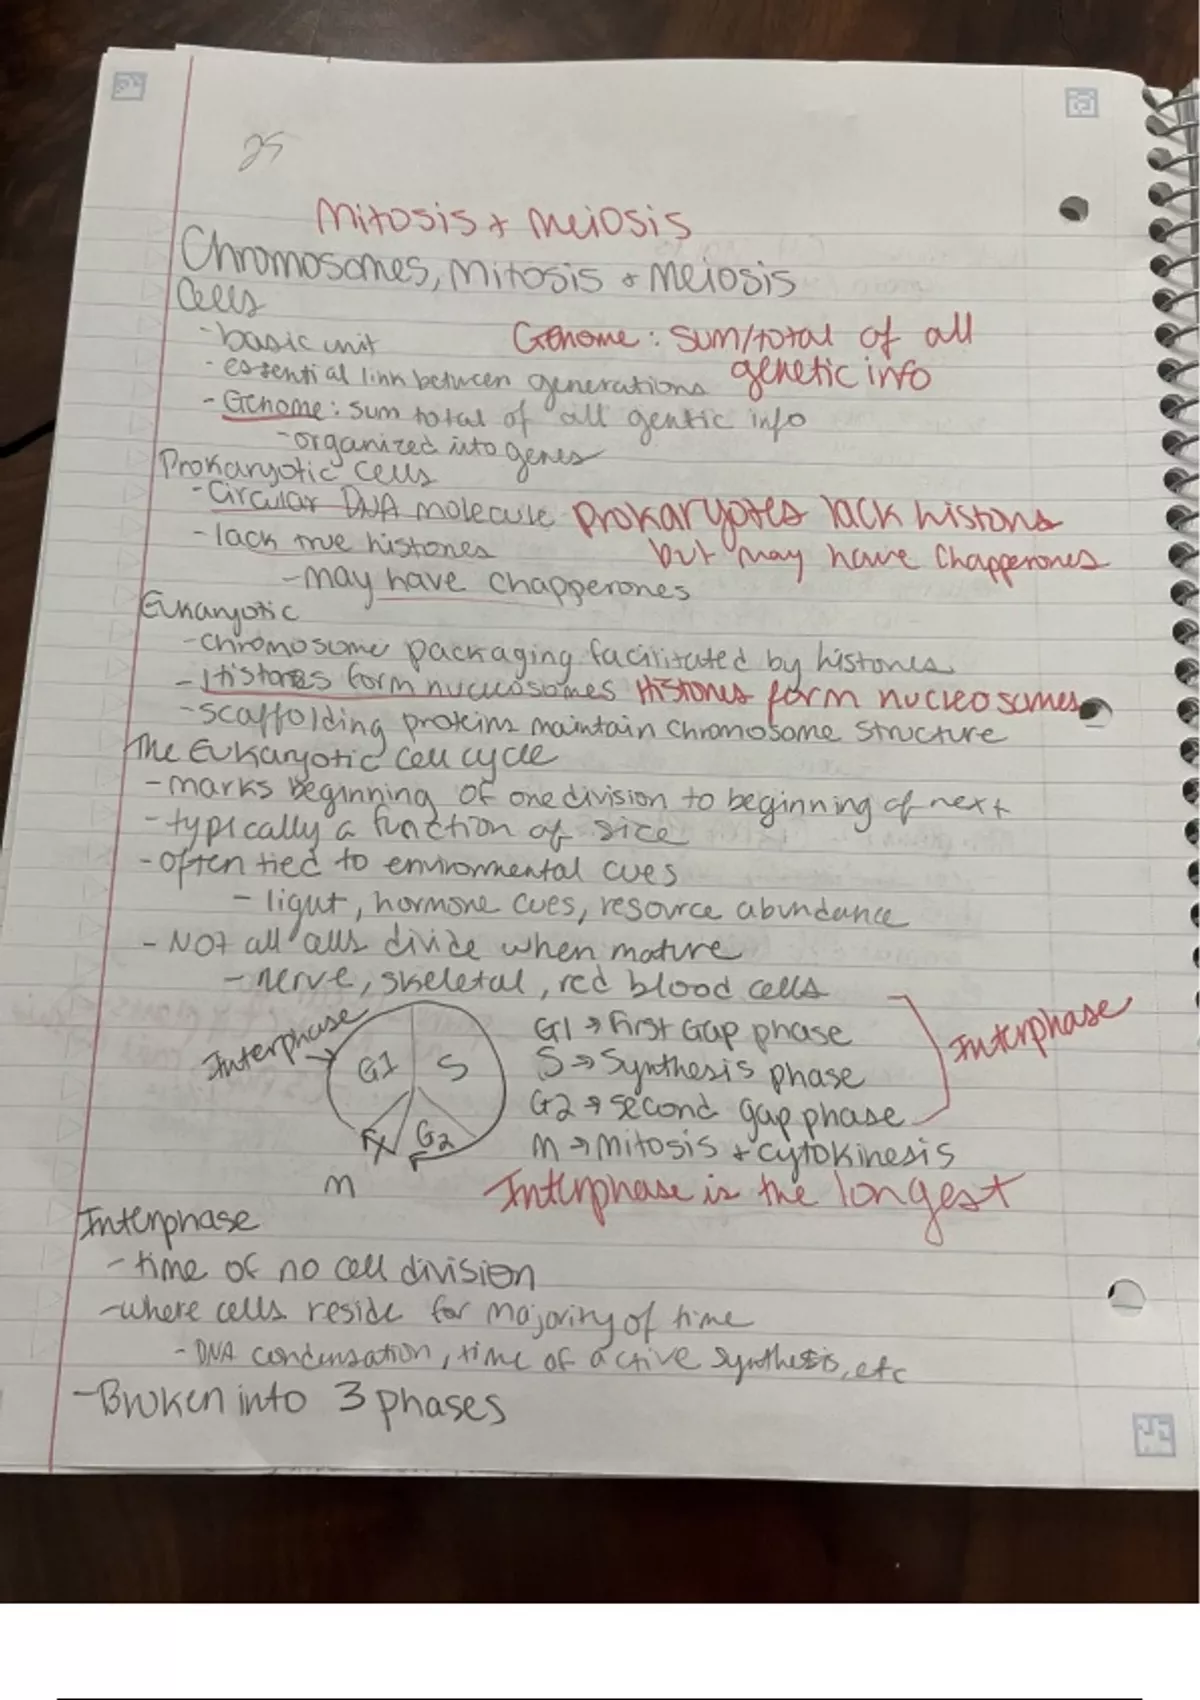 25
Mitosis + Meiosis
Chromosomes, Mitosis + Meiosis
Cells
- basic unit
Genome: sum/total of all
genetic info
- essential link between generations
- Genome: sum total of all gentic info
- organized into genes
Prokaryotic cells
- Circular DNA molecule
Prokaryotes lack histons
but may have Chapperones
- lack true histones
- may have chapperones
Eukaryotic
- chromosome packaging facilitated by histones
- Histones form nucleosomes
Histones form nucleosomes
- scaffolding proteins maintain chromosome structure
The Eukaryotic Cell cycle
- marks beginning of one division to beginning of next
- typically a function of size
- Often tied to environmental cues
- light, hormone cues, resource abundance
- Not all cells divide when mature
- nerve, skeletal, red blood cells
Interphase
G1
S
G2
M
G1 → First Gap phase
S → Synthesis phase
G2 → second gap phase
Interphase
M → Mitosis + cytokinesis
Interphase is the longest
Interphase
- time of no cell division
- where cells reside for majority of time
- DNA condensation, time of active synthesis, etc
- Broken into 3 phases